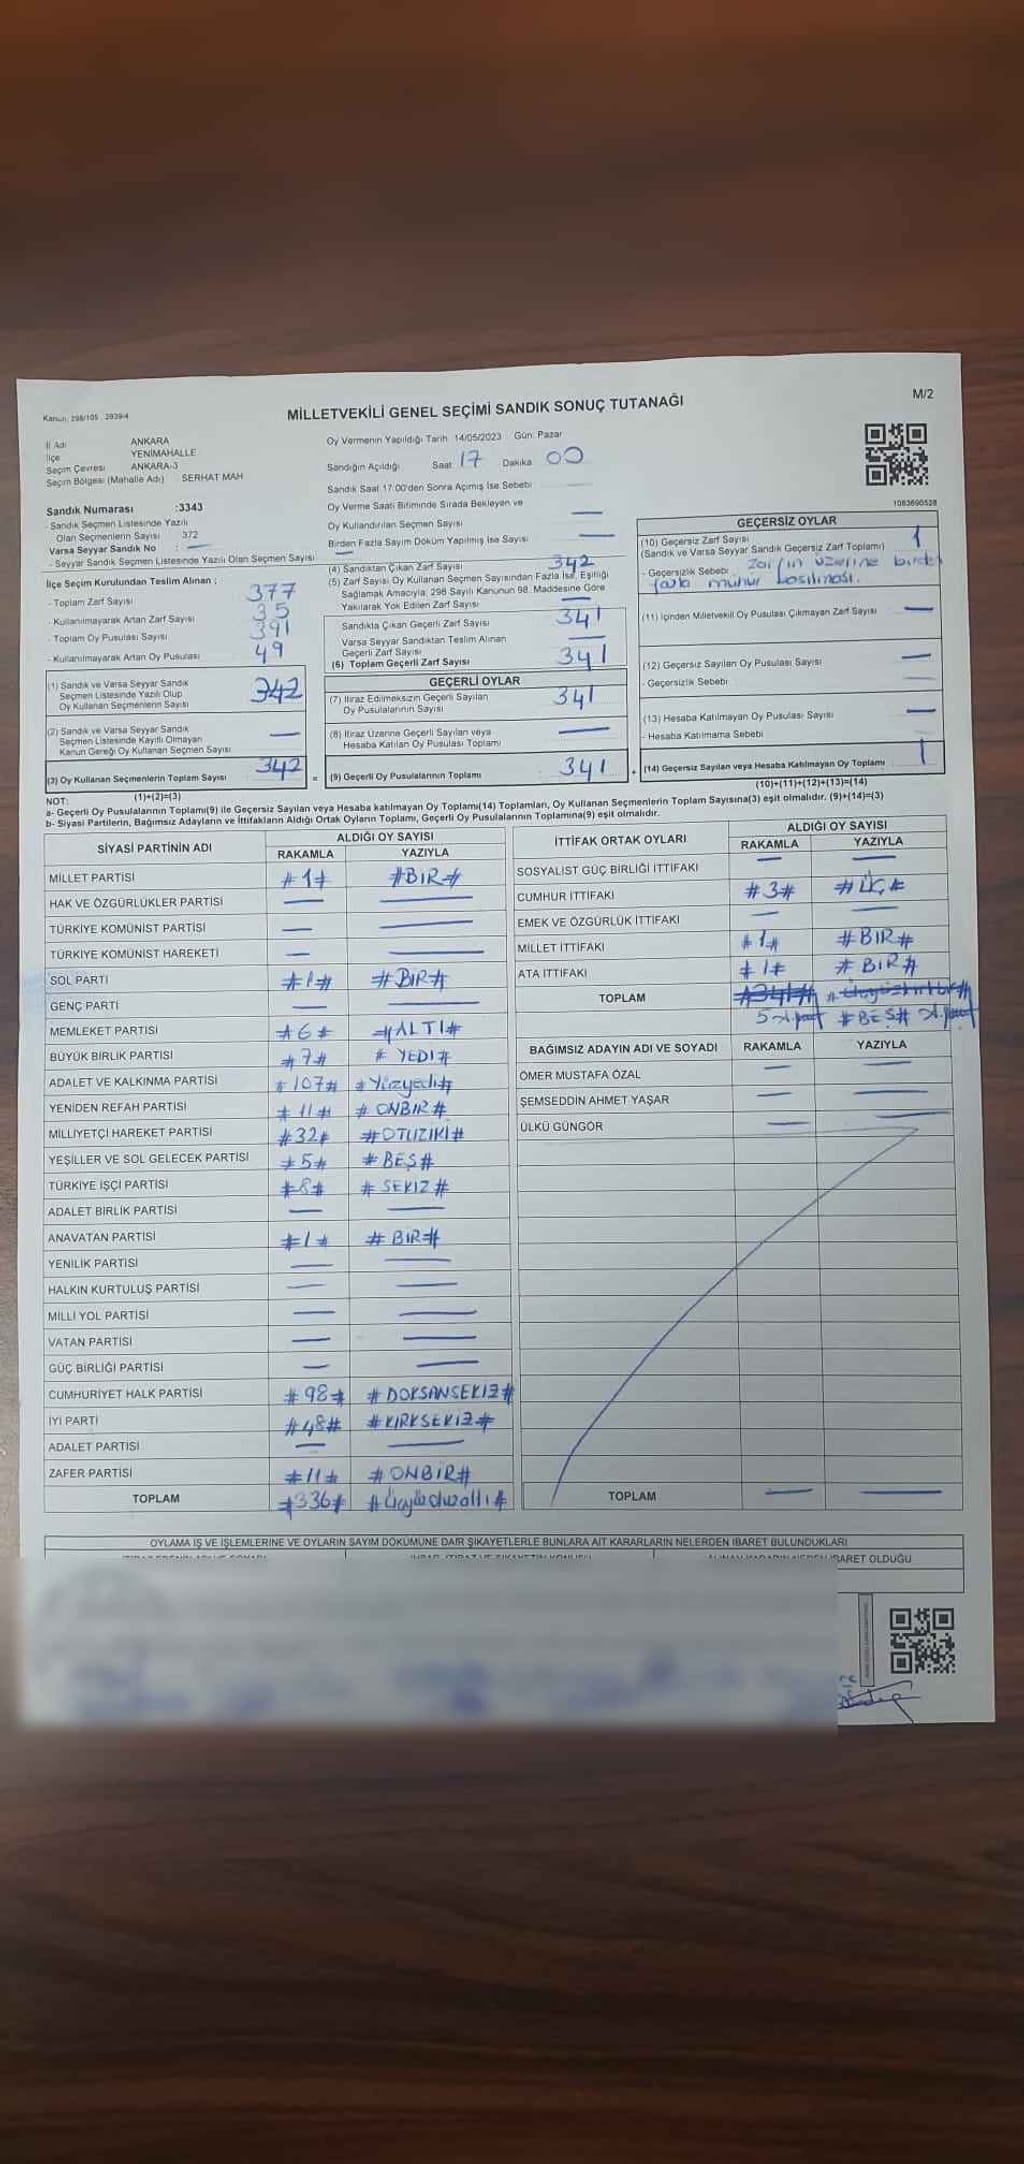 Kanun: 298/105 2839/4
MİLLETVEKİLİ GENEL SEÇİMİ SANDIK SONUÇ TUTANAĞI
M/2
İl Adı ANKARA
İlçe YENİMAHALLE
Seçim Çevresi ANKARA-3
Seçim Bölgesi (Mahalle Adı) SERHAT MAH
Sandık Numarası :3343
- Sandık Seçmen Listesinde Yazılı
Olan Seçmenlerin Sayısı 372
Varsa Seyyar Sandık No : —
- Seyyar Sandık Seçmen Listesinde Yazılı Olan Seçmen Sayısı: —
İlçe Seçim Kurulundan Teslim Alınan ;
- Toplam Zarf Sayısı 377
- Kullanılmayarak Artan Zarf Sayısı 35
- Toplam Oy Pusulası Sayısı 391
- Kullanılmayarak Artan Oy Pusulası 49
(1) Sandık ve Varsa Seyyar Sandık
Seçmen Listesinde Yazılı Olup
Oy Kullanan Seçmenlerin Sayısı 342
(2) Sandık ve Varsa Seyyar Sandık
Seçmen Listesinde Kayıtlı Olmayan
Kanun Gereği Oy Kullanan Seçmen Sayısı —
(3) Oy Kullanan Seçmenlerin Toplam Sayısı 342
(1)+(2)=(3)
Oy Vermenin Yapıldığı Tarih 14/05/2023 Gün: Pazar
Sandığın Açıldığı Saat 17 Dakika 00
Sandık Saat 17:00'den Sonra Açımış İse Sebebi —
Oy Verme Saati Bitiminde Sırada Bekleyen ve
Oy Kullandırılan Seçmen Sayısı —
Birden Fazla Sayım Döküm Yapılmış İse Sayısı —
(4) Sandıktan Çıkan Zarf Sayısı 342
(5) Zarf Sayısı Oy Kullanan Seçmen Sayısından Fazla İse, Eşitliği
Sağlamak Amacıyla; 298 Sayılı Kanunun 98. Maddesine Göre
Yakılarak Yok Edilen Zarf Sayısı —
Sandıkta Çıkan Geçerli Zarf Sayısı 341
Varsa Seyyar Sandıktan Teslim Alınan
Geçerli Zarf Sayısı —
(6) Toplam Geçerli Zarf Sayısı 341
GEÇERLİ OYLAR
(7) İtiraz Edilmeksizin Geçerli Sayılan
Oy Pusulalarının Sayısı 341
(8) İtiraz Üzerine Geçerli Sayılan veya
Hesaba Katılan Oy Pusulası Toplamı —
= (9) Geçerli Oy Pusulalarının Toplamı 341 +
1083690528
GEÇERSİZ OYLAR
(10) Geçersiz Zarf Sayısı 1
(Sandık ve Varsa Seyyar Sandık Geçersiz Zarf Toplamı)
- Geçersizlik Sebebi zarfın üzerine birden
fazla mühür basılması.
(11) İçinden Milletvekili Oy Pusulası Çıkmayan Zarf Sayısı —
(12) Geçersiz Sayılan Oy Pusulası Sayısı —
- Geçersizlik Sebebi —
(13) Hesaba Katılmayan Oy Pusulası Sayısı —
- Hesaba Katılmama Sebebi
(14) Geçersiz Sayılan veya Hesaba Katılmayan Oy Toplamı 1
(10)+(11)+(12)+(13)=(14)
NOT:
a- Geçerli Oy Pusulalarının Toplamı(9) ile Geçersiz Sayılan veya Hesaba katılmayan Oy Toplamı(14) Toplamları, Oy Kullanan Seçmenlerin Toplam Sayısına(3) eşit olmalıdır. (9)+(14)=(3)
b- Siyasi Partilerin, Bağımsız Adayların ve İttifakların Aldığı Ortak Oyların Toplamı, Geçerli Oy Pusulalarının Toplamına(9) eşit olmalıdır.
SİYASİ PARTİNİN ADI ALDIĞI OY SAYISI
RAKAMLA YAZIYLA
MİLLET PARTİSİ #1# #BIR#
HAK VE ÖZGÜRLÜKLER PARTİSİ — —
TÜRKİYE KOMÜNİST PARTİSİ — —
TÜRKİYE KOMÜNİST HAREKETİ — —
SOL PARTİ #1# #BIR#
GENÇ PARTİ — —
MEMLEKET PARTİSİ #6# #ALTI#
BÜYÜK BİRLİK PARTİSİ #7# # YEDI#
ADALET VE KALKINMA PARTİSİ #107# #Yüzyedi#
YENİDEN REFAH PARTİSİ #11# # ONBIR#
MİLLİYETÇİ HAREKET PARTİSİ #32# #OTUZIKI#
YEŞİLLER VE SOL GELECEK PARTİSİ #5# #BEŞ#
TÜRKİYE İŞÇİ PARTİSİ #8# # SEKIZ#
ADALET BİRLİK PARTİSİ — —
ANAVATAN PARTİSİ #1# # BIR#
YENİLİK PARTİSİ — —
HALKIN KURTULUŞ PARTİSİ — —
MİLLİ YOL PARTİSİ — —
VATAN PARTİSİ — —
GÜÇ BİRLİĞİ PARTİSİ — —
CUMHURİYET HALK PARTİSİ #98# #DOKSANSEKIZ#
İYİ PARTİ #48# #KIRKSEKIZ#
ADALET PARTİSİ — —
ZAFER PARTİSİ #11# #ONBIR#
TOPLAM #336# #Üçyüzotuzaltı#
İTTİFAK ORTAK OYLARI ALDIĞI OY SAYISI
RAKAMLA YAZIYLA
SOSYALİST GÜÇ BİRLİĞİ İTTİFAKI — —
CUMHUR İTTİFAKI #3# #ÜÇ#
EMEK VE ÖZGÜRLÜK İTTİFAKI — —
MİLLET İTTİFAKI #1# #BIR#
ATA İTTİFAKI #1# # BIR#
TOPLAM #341#
5 #BEŞ#
BAĞIMSIZ ADAYIN ADI VE SOYADI RAKAMLA YAZIYLA
ÖMER MUSTAFA ÖZAL — —
ŞEMSEDDİN AHMET YAŞAR — —
ÜLKÜ GÜNGÖR — —
TOPLAM — —
OYLAMA İŞ VE İŞLEMLERİNE VE OYLARIN SAYIM DÖKÜMÜNE DAİR ŞİKAYETLERLE BUNLARA AİT KARARLARIN NELERDEN İBARET BULUNDUKLARI
İBARET OLDUĞU